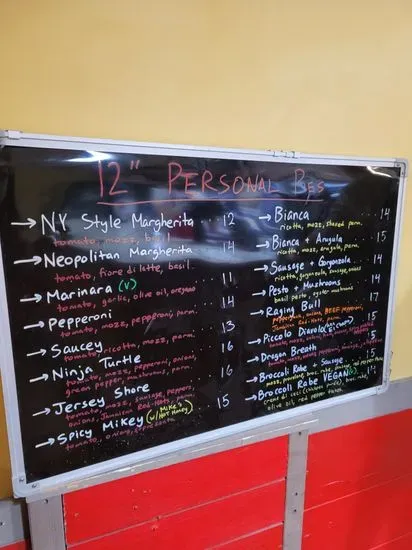 12" PERSONAL PIES
→ NY Style Margherita 12
tomato, mozz, basil
→ Neopolitan Margherita 14
tomato, fiore di latte, basil
→ Marinara (V) 11
tomato, garlic, olive oil, oregano
→ Pepperoni 14
tomato, mozz, pepperoni, parm.
→ Saucey 13
tomato, ricotta, mozz, parm.
→ Ninja Turtle 16
tomato, mozz, pepperoni, onion,
green pepper, mushrooms, parm.
→ Jersey Shore 16
tomato, mozz, sausage, peppers,
onions, Jamaican Red-Hots, parm.
→ Spicy Mikey (w/ Mike's Hot Honey) 15
tomato,
→ Bianca 14
ricotta, mozz, shaved parm.
→ Bianca + Arugula 15
ricotta, mozz, arugula, parm.
→ Sausage + Gorgonzola 14
ricotta, gorgonzola, sausage, onions
→ Pesto + Mushrooms 14
basil pesto, oyster mushrooms
→ Raging Bull 17
onions, BEEF PEPPERONI,
Jamaican Red-Hots, parm.
→ Piccolo Diavola 15
tomato, mozz,
→ Dragon Breath
tomato, mozz,
→ Broccoli Rabe + Sausage 15
mozz,
→ Broccoli Robe VEGAN (V) 14
crema di ceci (chickpea puree), broc. rabe,
olive oil, red pepper flakes